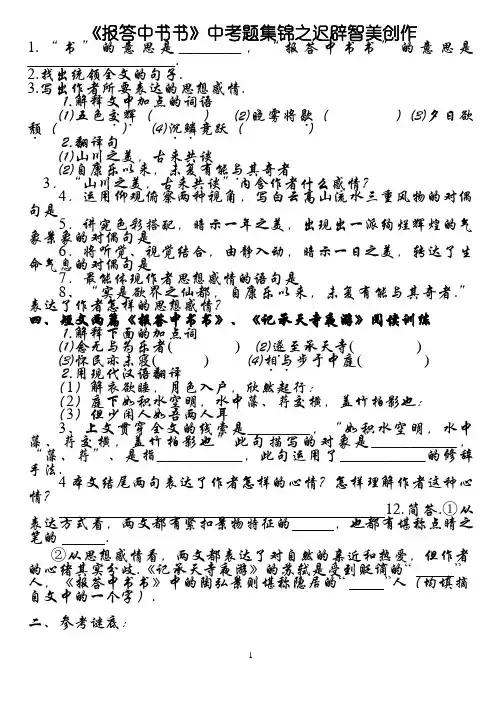 《报答中书书》中考题集锦之迟辟智美创作
1.“书”的意思是　　　，“报答中书书”的意思是
　　　.
2.找出统领全文的句子.
3.写出作者所要表达的思想感情.
1.解释文中加点的词语
⑴五色交辉（　　　） ⑵晓雾将歇（　　　）⑶夕日欲
颓（　　　） ⑷沉鳞竞跃（　　　）
2.翻译句
⑴山川之美，古来共谈
⑵自康乐以来，未复有能与其奇者
3.“山川之美，古来共谈”内含作者什么感情？
4．运用仰观俯察两种视角，写白云高山流水三重风物的对偶
句是
5．讲究色彩搭配，暗示一年之美，出现出一派绚烂辉煌的气
象景象的对偶句是
6．将听觉、视觉结合，由静入动，暗示一日之美，转达了生
命气息的对偶句是
7．最能体现作者思想感情的语句是
8．“实是欲界之仙都，自康乐以来，未复有能与其奇者.”
表达了作者怎样的思想感情？
四、短文两篇《报答中书书》、《记承天寺夜游》阅读训练
1.解释下面的加点词
⑴念无与为乐者(　　　) ⑵遂至承天寺(　　　)
⑶怀民亦未寝(　　　) ⑷相与步于中庭(　　　)
2.用现代汉语翻译
(1) 解衣欲睡，月色入户，欣然起行：
(2) 庭下如积水空明，水中藻、荇交横，盖竹柏影也：
(3) 但少闲人如吾两人耳
3、上文贯穿全文的线索是　　　，“如积水空明，水中
藻、荇交横，盖竹柏影也”此句描写的对象是　　　，
“藻、荇”、是指　　　，此句运用了　　　的修辞
手法.
4本文结尾两句表达了作者怎样的心情？怎样理解作者这种心
情？
12.简答.①从
表达方式看，两文都有紧扣景物特征的　　　，也都有堪称点睛之
笔的　　　.
②从思想感情看，两文都表达了对自然的亲近和热爱，但作者
的心绪其实分歧.《记承天寺夜游》的苏轼是受到贬谪的“　　　”
人，《报答中书书》中的陶弘景则堪称隐居的“　　　”人（均填摘
自文中的一个字）.
二、参考谜底：
1